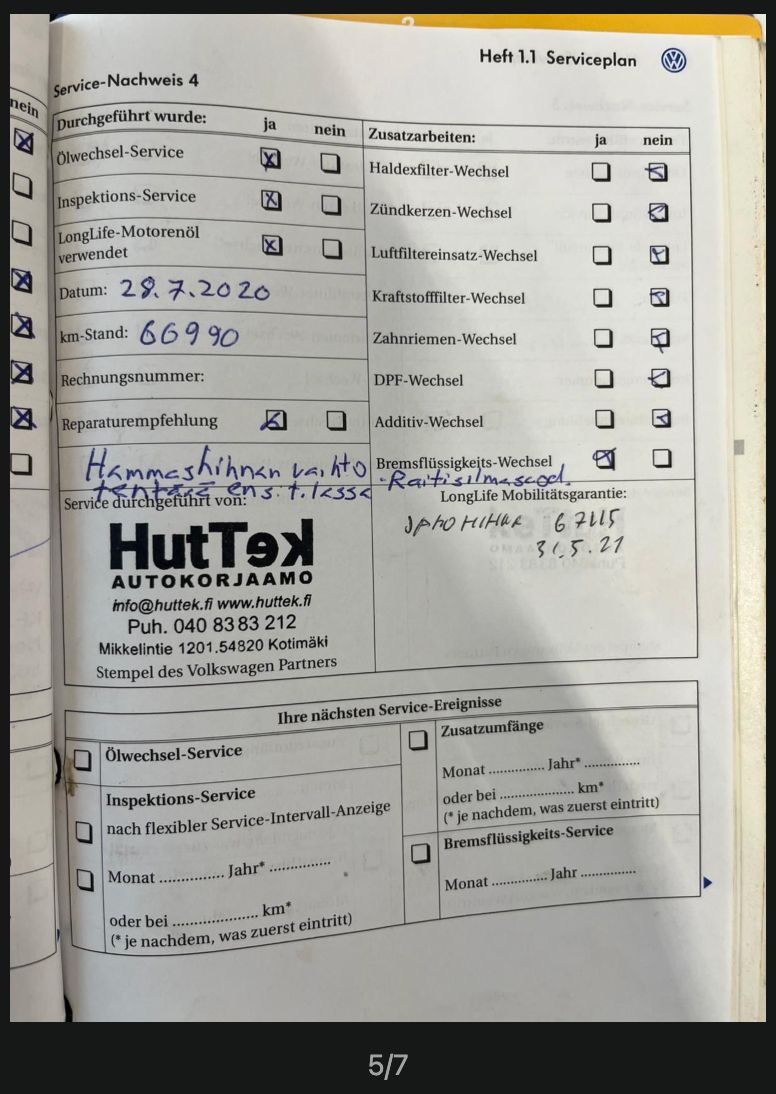 Heft 1.1 Serviceplan
Service-Nachweis 4
nein
Durchgeführt wurde: ja nein
Ölwechsel-Service
Inspektions-Service
LongLife-Motorenöl
verwendet
Datum: 28.7.2020
km-Stand: 66990
Rechnungsnummer:
Reparaturempfehlung
Zusatzarbeiten: ja nein
Haldexfilter-Wechsel
Zündkerzen-Wechsel
Luftfiltereinsatz-Wechsel
Kraftstofffilter-Wechsel
Zahnriemen-Wechsel
DPF-Wechsel
Additiv-Wechsel
Bremsflüssigkeits-Wechsel
Hammashihnan vaihto
Service durchgeführt von:
HutTek
AUTOKORJAAMO
info@huttek.fi www.huttek.fi
Puh. 040 8383 212
Mikkelintie 1201.54820 Kotimäki
Stempel des Volkswagen Partners
LongLife Mobilitätsgarantie:
67115
31.5.21
Ihre nächsten Service-Ereignisse
Ölwechsel-Service
Inspektions-Service
nach flexibler Service-Intervall-Anzeige
Monat .............. Jahr* ..............
oder bei .................... km*
(* je nachdem, was zuerst eintritt)
Zusatzumfänge
Monat .............. Jahr* ..............
oder bei .................... km*
(* je nachdem, was zuerst eintritt)
Bremsflüssigkeits-Service
Monat .............. Jahr ..............
5/7